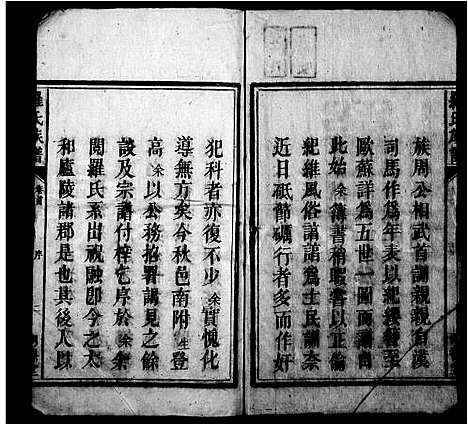 族周公相武首訓親親自漢
司馬作為年表以紀
歐蘇詳為五世一圖而譜自
此始余簿書稍暇當以正倫
紀維風俗諄諄為士民誦奈
近日砥節礪行者多而作奸
犯科者亦復不少余實愧化
導無方矣今秋邑南附生登
高余以公務招署講見之餘
談及宗譜付梓乞序於余余
閱羅氏系出祝融卽今之太
和廬陵諸郡是也其後人以
羅氏族譜
序